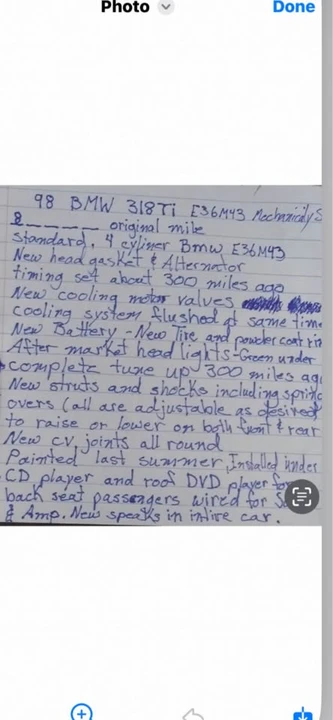 Photo
Done
98 BMW 318Ti E36M43 Mechanically S
8______ original mile
Standard, 4 cyliner Bmw E36M43
New head gasket & Alternator
timing set about 300 miles ago
New cooling motor valves
cooling system flushed at same time
New Battery - New Tire and powder coat rin
After market head lights - Green under
complete tune up 300 miles ag
New struts and shocks including spring
overs (all are adjustable as desired
to raise or lower on both front & rear
New cv joints all round
Painted last summer, Installed under
CD player and roof DVD player for
back seat passengers wired for S
& Amp. New speaks in intire car.